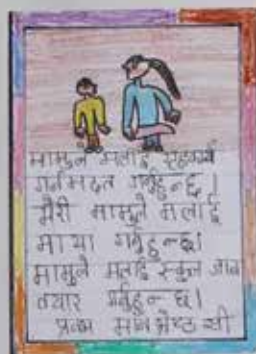 मामुले मलाई गृहकार्य
गर्न मद्दत गर्नुहुन्छ ।
मेरी मामुले मलाई
माया गर्नुहुन्छ।
मामुले मलाई स्कुल जान
तयार गर्नुहुन्छ।
प्रथम मान श्रेष्ठ सी